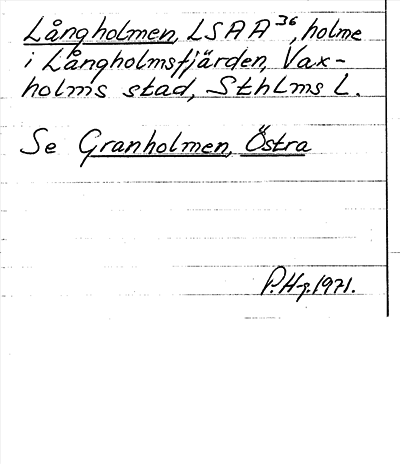 Långholmen, LSAA³⁶, holme
i Långholmsfjärden, Vax-
holms stad, Sthlms L.
Se Granholmen, Östra
P.Hg. 1971.